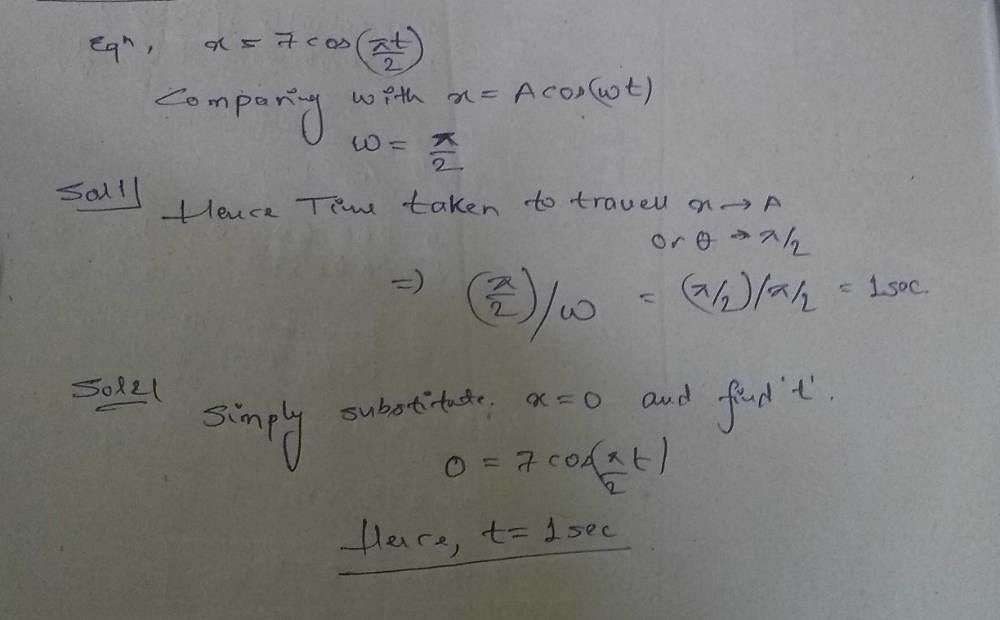 Eqⁿ, x = 7 cos(πt/2)
Comparing with x = A cos(ωt)
ω = π/2
Sol 1| Hence Time taken to travell x → A
or θ → π/2
=) (π/2)/ω = (π/2)/π/2 = 1 sec.
Sol 2| Simply substitute. x = 0 and find 't'.
0 = 7 cos(π/2 t)
Hence, t = 1 sec